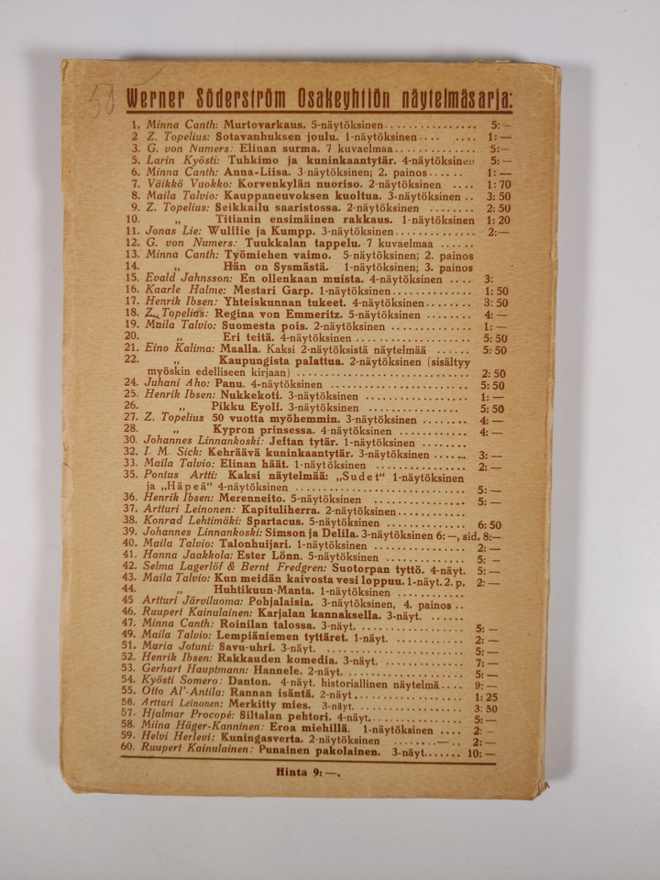 58
Werner Söderström Osakeyhtiön näytelmäsarja:
1. Minna Canth: Murtovarkaus. 5-näytöksinen .............. 5: —
2 Z. Topelius: Sotavanhuksen joulu. 1-näytöksinen.... .... 1: —
3. G. von Numers: Elinan surma. 7 kuvaelmaa .............. 5: —
5. Larin Kyösti: Tuhkimo ja kuninkaantytär. 4-näytöksinen 5: —
6. Minna Canth: Anna-Liisa. 3-näytöksinen; 2. painos ...... 1: —
7. Väikkö Vuokko: Korvenkylän nuoriso. 2-näytöksinen .... 1: 70
8. Maila Talvio: Kauppaneuvoksen kuoltua. 3-näytöksinen .. 3: 50
9. Z. Topelius: Seikkailu saaristossa. 2-näytöksinen ........ 2: 50
10. „ Titianin ensimäinen rakkaus. 1-näytöksinen 1: 20
11. Jonas Lie: Wulffie ja Kumpp. 3-näytöksinen ............ 2: —
12. G. von Numers: Tuukkalan tappelu. 7 kuvaelmaa ......
13. Minna Canth: Työmiehen vaimo. 5-näytöksinen; 2. painos
14. „ Hän on Sysmästä. 1-näytöksinen; 3. painos
15. Evald Jahnsson: En ollenkaan muista. 4-näytöksinen .... 3:
16. Kaarle Halme: Mestari Garp. 1-näytöksinen.............. 1: 50
17. Henrik Ibsen: Yhteiskunnan tukeet. 4-näytöksinen........ 3: 50
18. Z. Topelius: Regina von Emmeritz. 5-näytöksinen ........ 4: —
19. Maila Talvio: Suomesta pois. 2-näytöksinen .............. 1: —
20. „ Eri teitä. 4-näytöksinen .................. 5: 50
21. Eino Kalima: Maalla. Kaksi 2-näytöksistä näytelmää ...... 5: 50
22. „ Kaupungista palattua. 2-näytöksinen (sisältyy
myöskin edelliseen kirjaan) .............................. 2: 50
24. Juhani Aho: Panu. 4-näytöksinen ........................ 5: 50
25. Henrik Ibsen: Nukkekoti. 3-näytöksinen .................. 1: —
26. „ Pikku Eyolf. 3-näytöksinen .............. 5: 50
27. Z. Topelius 50 vuotta myöhemmin. 3-näytöksinen ........ 4: —
28. „ Kypron prinsessa. 4-näytöksinen .......... 4: —
30. Johannes Linnankoski: Jeftan tytär. 1-näytöksinen ........
32. I. M. Sick: Kehräävä kuninkaantytär. 3-näytöksinen ...... 3: —
33. Maila Talvio: Elinan häät. 1-näytöksinen ................ 2: —
35. Pontus Artti: Kaksi näytelmää: „Sudet" 1-näytöksinen
ja „Häpeä" 4-näytöksinen .............................. 5: —
36. Henrik Ibsen: Merenneito. 5-näytöksinen ................ 5: —
37. Artturi Leinonen: Kapituliherra. 2-näytöksinen............
38. Konrad Lehtimäki: Spartacus. 5-näytöksinen ............ 6: 50
39. Johannes Linnankoski: Simson ja Delila. 3-näytöksinen 6: —, sid. 8: —
40. Maila Talvio: Talonhuijari. 1-näytöksinen ................ 2: —
41. Hanna Jaakkola: Ester Lönn. 5-näytöksinen .............. 5: —
42. Selma Lagerlöf & Bernt Fredgren: Suotorpan tyttö. 4-näyt. 5: —
43. Maila Talvio: Kun meidän kaivosta vesi loppuu. 1-näyt. 2. p. 2: —
44. „ Huhtikuun-Manta. 1-näytöksinen ..........
45 Artturi Järviluoma: Pohjalaisia. 3-näytöksinen, 4. painos ..
46. Ruupert Kainulainen: Karjalan kannaksella. 3-näyt. ......
47. Minna Canth: Roinilan talossa. 3-näyt. .................. 5: —
49. Maila Talvio: Lempiäniemen tyttäret. 1-näyt. ............ 2: —
51. Maria Jotuni: Savu-uhri. 3-näyt. ........................ 5: —
52. Henrik Ibsen: Rakkauden komedia. 3-näyt. .............. 7: —
53. Gerhart Hauptmann: Hannele. 2-näyt. .................... 5: —
54. Kyösti Somero: Danton. 4-näyt. historiallinen näytelmä .... 9: —
55. Otto Al'-Antila: Rannan isäntä. 2-näyt .................. 1: 25
56. Artturi Leinonen: Merkitty mies. 3-näyt. ................ 3: 50
57. Hjalmar Procopé: Siltalan pehtori. 4-näyt. .............. 5: —
58. Miina Häger-Kanninen: Eroa miehillä. 1-näytöksinen .... 2: —
59. Helvi Herlevi: Kuningasverta. 2-näytöksinen ............ 2: —
60. Ruupert Kainulainen: Punainen pakolainen. 3-näyt....... 10: —
Hinta 9: —.